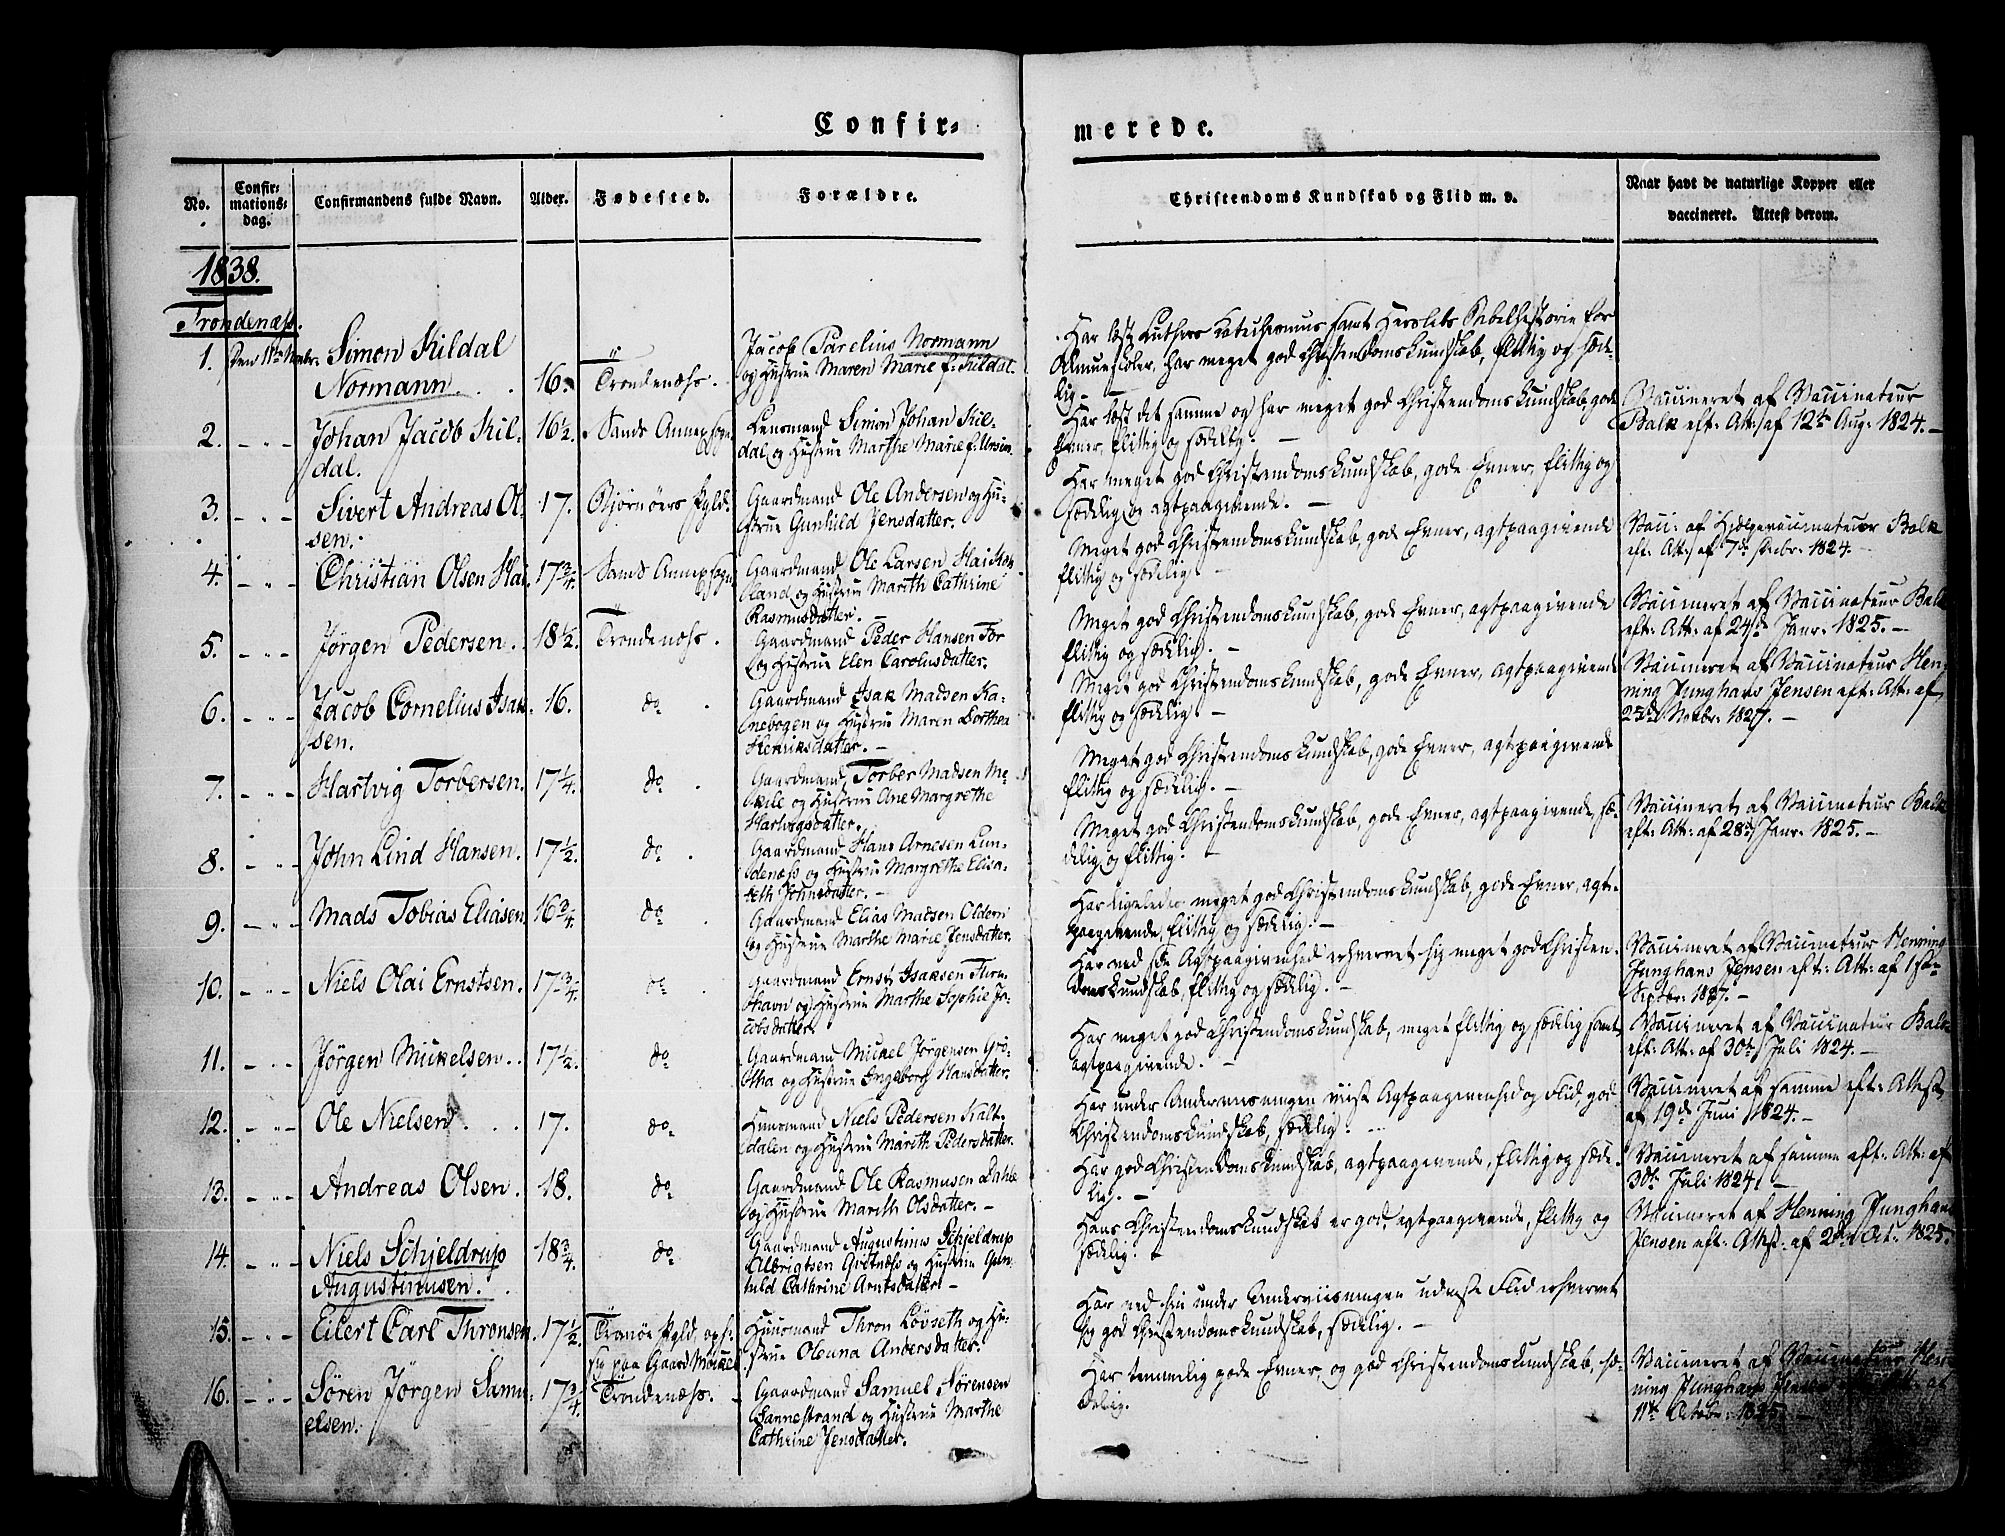 Confir-
merede.
No.
Confir-
mations-
dag.
Confirmandens fulde Navn.
Alder.
Fødested.
Forældre.
Christendoms Kundskab og Flid m. v.
Naar havt de naturlige Kopper eller
vaccineret. Attest derom.
1838.
Trondenæs.
1. Simon Kildal
Normann 16. Trondenæss.
Jacob Parelius Normann
og Hustrue Maren Marie f: Kildal.
Har læst Luthers Catechismus samt Herslebs Bibelhistorie for
Almueskoler, har meget god Christendomskundskab, flittig og sæde-
lig. -
2. - " - Johan Jacob Kil-
dal. 16½. Sands Annexsogn
Lensmand Simon Johan Kil-
dal og Hustrue Marthe Marie f:
Har læst det samme og har meget god Christendomskundskab, gode
Evner, flittig og sædelig. -
Vaccineret af Vaccinateur
Balk eft: Att: af 12te Aug: 1824. -
3. - " - Sivert Andreas Ol-
sen. 17. Bjørnøers Pgld.
Gaardmand Ole Andersen og Hu-
strue Gunhild Jensdatter.
Har meget god Christendomskundskab, gode Evner, flittig og
sædelig og agtpaagivende. -
4. - " - Christian Olsen Hai 17¾. Sands Annexsogn
Gaardmand Ole Larsen
land og Hustrue Marith Cathrine
Rasmusdatter. -
Meget god Christendomskundskab, gode Evner, agtpaagivende
flittig og sædelig. -
Vacc: af Hjelpevaccinateur Balk
eft: Att: af 7de 1824. -
5. - " - Jørgen Pedersen. 18½. Trondenæss.
Gaardmand Peder Hansen
og Hustrue Elen Carolusdatter.
Meget god Christendomskundskab, gode Evner, agtpaagivende
flittig og sædelig. -
Vaccineret af Vaccinateur Balk
eft: Att: af 24de Janr: 1825. -
6. - " - Jacob Cornelius Isak-
sen. 16. do
Gaardmand Isak Madsen Ka-
nebogen og Hustrue Maren Dorthea
Henriksdatter. -
Meget god Christendomskundskab, gode Evner, agtpaagivende
flittig og sædelig. -
Vaccineret af Vaccinateur Hen-
ning Junghans Jensen eft: Att: af
1827. -
7. - " - Hartvig Torbersen. 17¼. do
Gaardmand Torber Madsen Me-
kile og Hustrue Ane Margrethe
Hartvigsdatter.
Meget god Christendomskundskab, gode Evner, agtpaagivende
flittig og sædelig. -
8. - " - John Lind Hansen. 17½. do
Gaardmand Hans Arnesen Lun-
denæss og Hustrue Margrethe Elisa-
beth Johnsdatter. -
Meget god Christendomskundskab, gode Evner, agtpaagivende, sæ-
delig og flittig. -
Vaccineret af Vaccinateur Balk
eft: Att: af 28de Janr: 1825. -
9. - " - Mads Tobias Eliasen 16¾. do
Gaardmand Elias Madsen
og Hustrue Marthe Marie Jensdatter.
Har ligeledes meget god Christendomskundskab, gode Evner, agt-
paagivende, flittig og sædelig. -
10. - " - Niels Olai Ernstsen. 17¾. do
Gaardmand Ernst Isaksen
havn og Hustrue Marthe Sophie Ja-
cobsdatter.
Har ved sin Agtpaagivenhed erhvervet sig meget god Christen-
domskundskab, flittig og sædelig. -
Vaccineret af Vaccinateur Henning
Junghans Jensen eft: Att: af 1ste
Septbr:
11. - " - Jørgen Mickelsen. 17½. do
Gaardmand Mickel Jørgensen Grø-
tha og Hustrue Ingeborg Hansdatter.
Har meget god Christendomskundskab, meget flittig og sædelig samt
agtpaagivende. -
Vaccineret af Vaccinateur Balk
eft: Att: af 30te Juli 1824. -
12. - " - Ole Nielsen. 17. do
Huusmand Niels Pedersen Kalt-
dalen og Hustrue Marith Pedersdatter.
Har under Underviisningen viist Agtpaagivenhed og Flid, god
Christendomskundskab, sædelig.
Vaccineret af samme eft: Attest
af 19de Juni 1824. -
13. - " - Andreas Olsen. 18. do
Gaardmand Ole Rasmusen Dahle
og Hustrue Marith Olsdatter. -
Har god Christendomskundskab, agtpaagivende, flittig og sæde-
lig. -
Vaccineret af samme eft: Att: af
30te Juli 1824. -
14. - " - Niels Schjeldrup
Augustinusen. 18¾. do
Gaardmand Augustinus Schjeldrup
Albrigtsen og Hustrue Gun-
hild Cathrine Arntsdatter -
Hans Christendomskundskab er god, agtpaagivende, flittig og
sædelig. -
Vaccineret af Henning Junghans
Jensen eft: Attest: af Oct: 1825.
15. - " - Eilert Carl Thronsen. 17½. Tranøe Pgld, oph:
sig paa Gaard
Huusmand Thron Løvseth og Hu-
strue Oleana Andersdatter.
Har ved sin under Underviisningen udviste Flid erhvervet
sig god Christendomskundskab, sædelig. -
16. - " - Søren Jørgen Samu-
elsen. 17¾. Trondenæss.
Gaardmand Samuel Sørensen
Sannestrand og Hustrue Marthe
Cathrine Jensdatter.
Har temmelig gode Evner, og god Christendomskundskab, sæ-
delig.
Vaccineret af Vaccinateur Hen-
ning Junghans Jensen eft: Att: af
11te Octobr: 1825. -